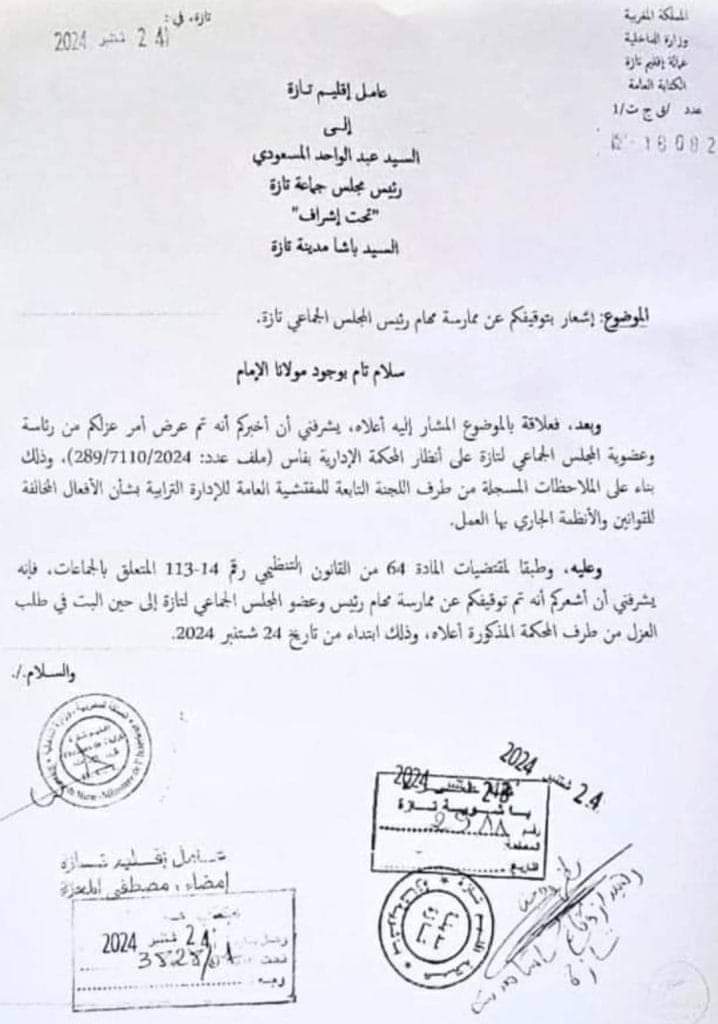 المملكة المغربية
وزارة الداخلية
عمالة إقليم تازة
الكتابة العامة
عدد /ق ج ت/1
تازة، في:
24 شتنبر 2024
عامل إقليم تازة
إلى
السيد عبد الواحد المسعودي
رئيس مجلس جماعة تازة
"تحت إشراف"
السيد باشا مدينة تازة
الموضوع: إشعار بتوقيفكم عن ممارسة مهام رئيس المجلس الجماعي تازة.
سلام تام بوجود مولانا الإمام
وبعد، فعلاقة بالموضوع المشار إليه أعلاه، يشرفني أن أخبركم أنه تم عرض أمر عزلكم من رئاسة
وعضوية المجلس الجماعي لتازة على أنظار المحكمة الإدارية بفاس (ملف عدد: 289/7110/2024)، وذلك
بناء على الملاحظات المسجلة من طرف اللجنة التابعة للمفتشية العامة للإدارة الترابية بشأن الأفعال المخالفة
للقوانين والأنظمة الجاري بها العمل.
وعليه، وطبقا لمقتضيات المادة 64 من القانون التنظيمي رقم 14-113 المتعلق بالجماعات، فإنه
يشرفني أن أشعركم أنه تم توقيفكم عن ممارسة مهام رئيس وعضو المجلس الجماعي لتازة إلى حين البت في طلب
العزل من طرف المحكمة المذكورة أعلاه، وذلك ابتداء من تاريخ 24 شتنبر 2024.
والسلام./.
24 شتنبر 2024
باشوية تازة
رقم
التاريخ
عامل إقليم تازة
إمضاء: مصطفى المعزة
24 شتنبر 2024
تحت